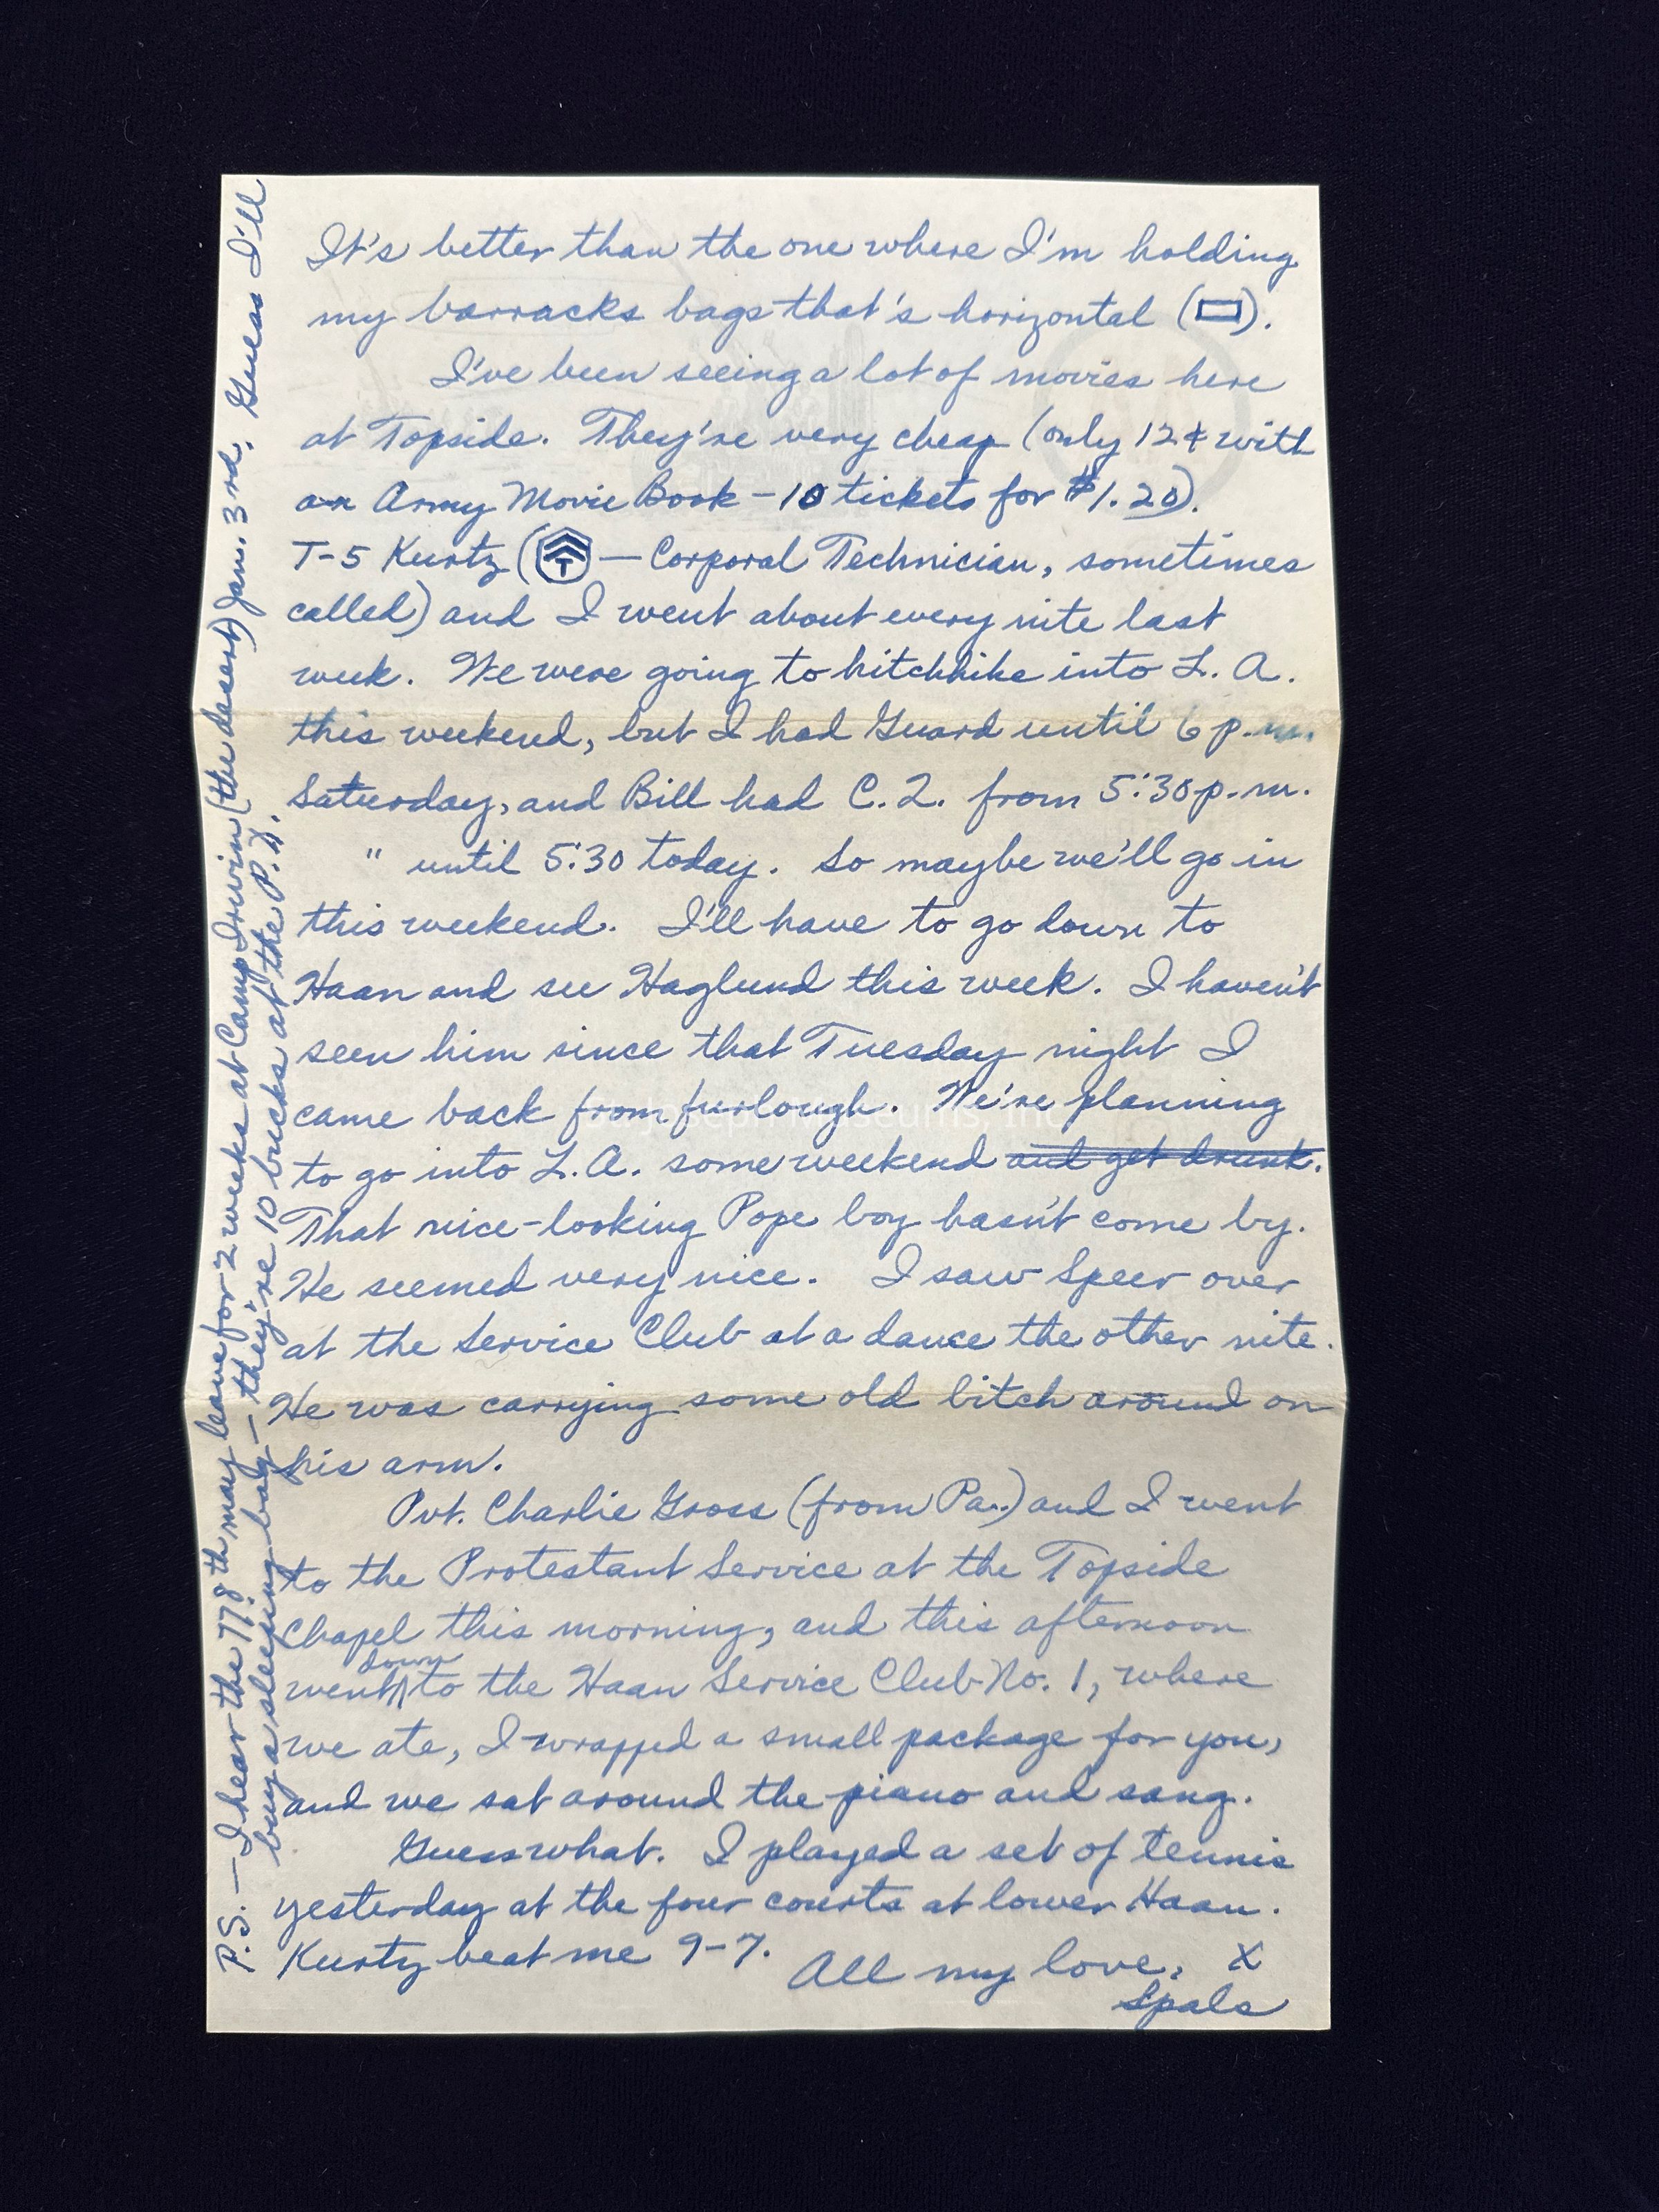 It's better than the one where I'm holding
my barracks bags that's horizontal (▭).
I've been seeing a lot of movies here
at Topside. They're very cheap (only 12¢ with
an Army Movie Book – 10 tickets for $1.20).
T-5 Kurtz ( T – Corporal Technician, sometimes
called) and I went about every nite last
week. We were going to hitchhike into L.A.
this weekend, but I had Guard until 6 p.m.
Saturday, and Bill had C.Q. from 5:30 p.m.
" until 5:30 today. So maybe we'll go in
this weekend. I'll have to go down to
Haan and see Haglund this week. I haven't
seen him since that Tuesday night I
came back from furlough. We're planning
to go into L.A. some weekend and get drunk.
That nice-looking Pope boy hasn't come by.
He seemed very nice. I saw Speer over
at the Service Club at a dance the other nite.
He was carrying some old bitch around on
his arm.
Pvt. Charlie Gross (from Pa.) and I went
to the Protestant Service at the Topside
Chapel this morning, and this afternoon
went down to the Haan Service Club No. 1, where
we ate, I wrapped a small package for you,
and we sat around the piano and sang.
Guess what. I played a set of tennis
yesterday at the four courts at lower Haan.
Kurtz beat me 9-7. All my love, X
Spals
P.S. — I hear the 778th may leave for 2 weeks at Camp Irwin (the desert) Jan. 3rd. Guess I'll
buy a sleeping bag – they're 10 bucks at the P.X.
Joseph Museums, Inc.